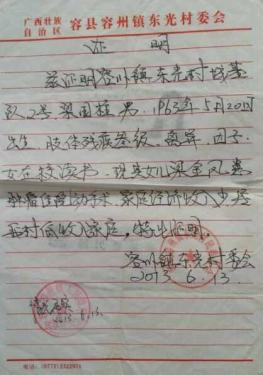 广西壮族
自治区 容县容州镇东光村委会
证 明
兹证明容州镇东光村城基
队2号梁国柱男,1963年5月20日
出生 肢体残疾叁级,离异,因子
女在校读书,现其女儿梁金凤患
住院动手术 家庭经济收入少 属
我村低收入家庭,特此证明。
容州镇东光村委会
2013. 6. 13.